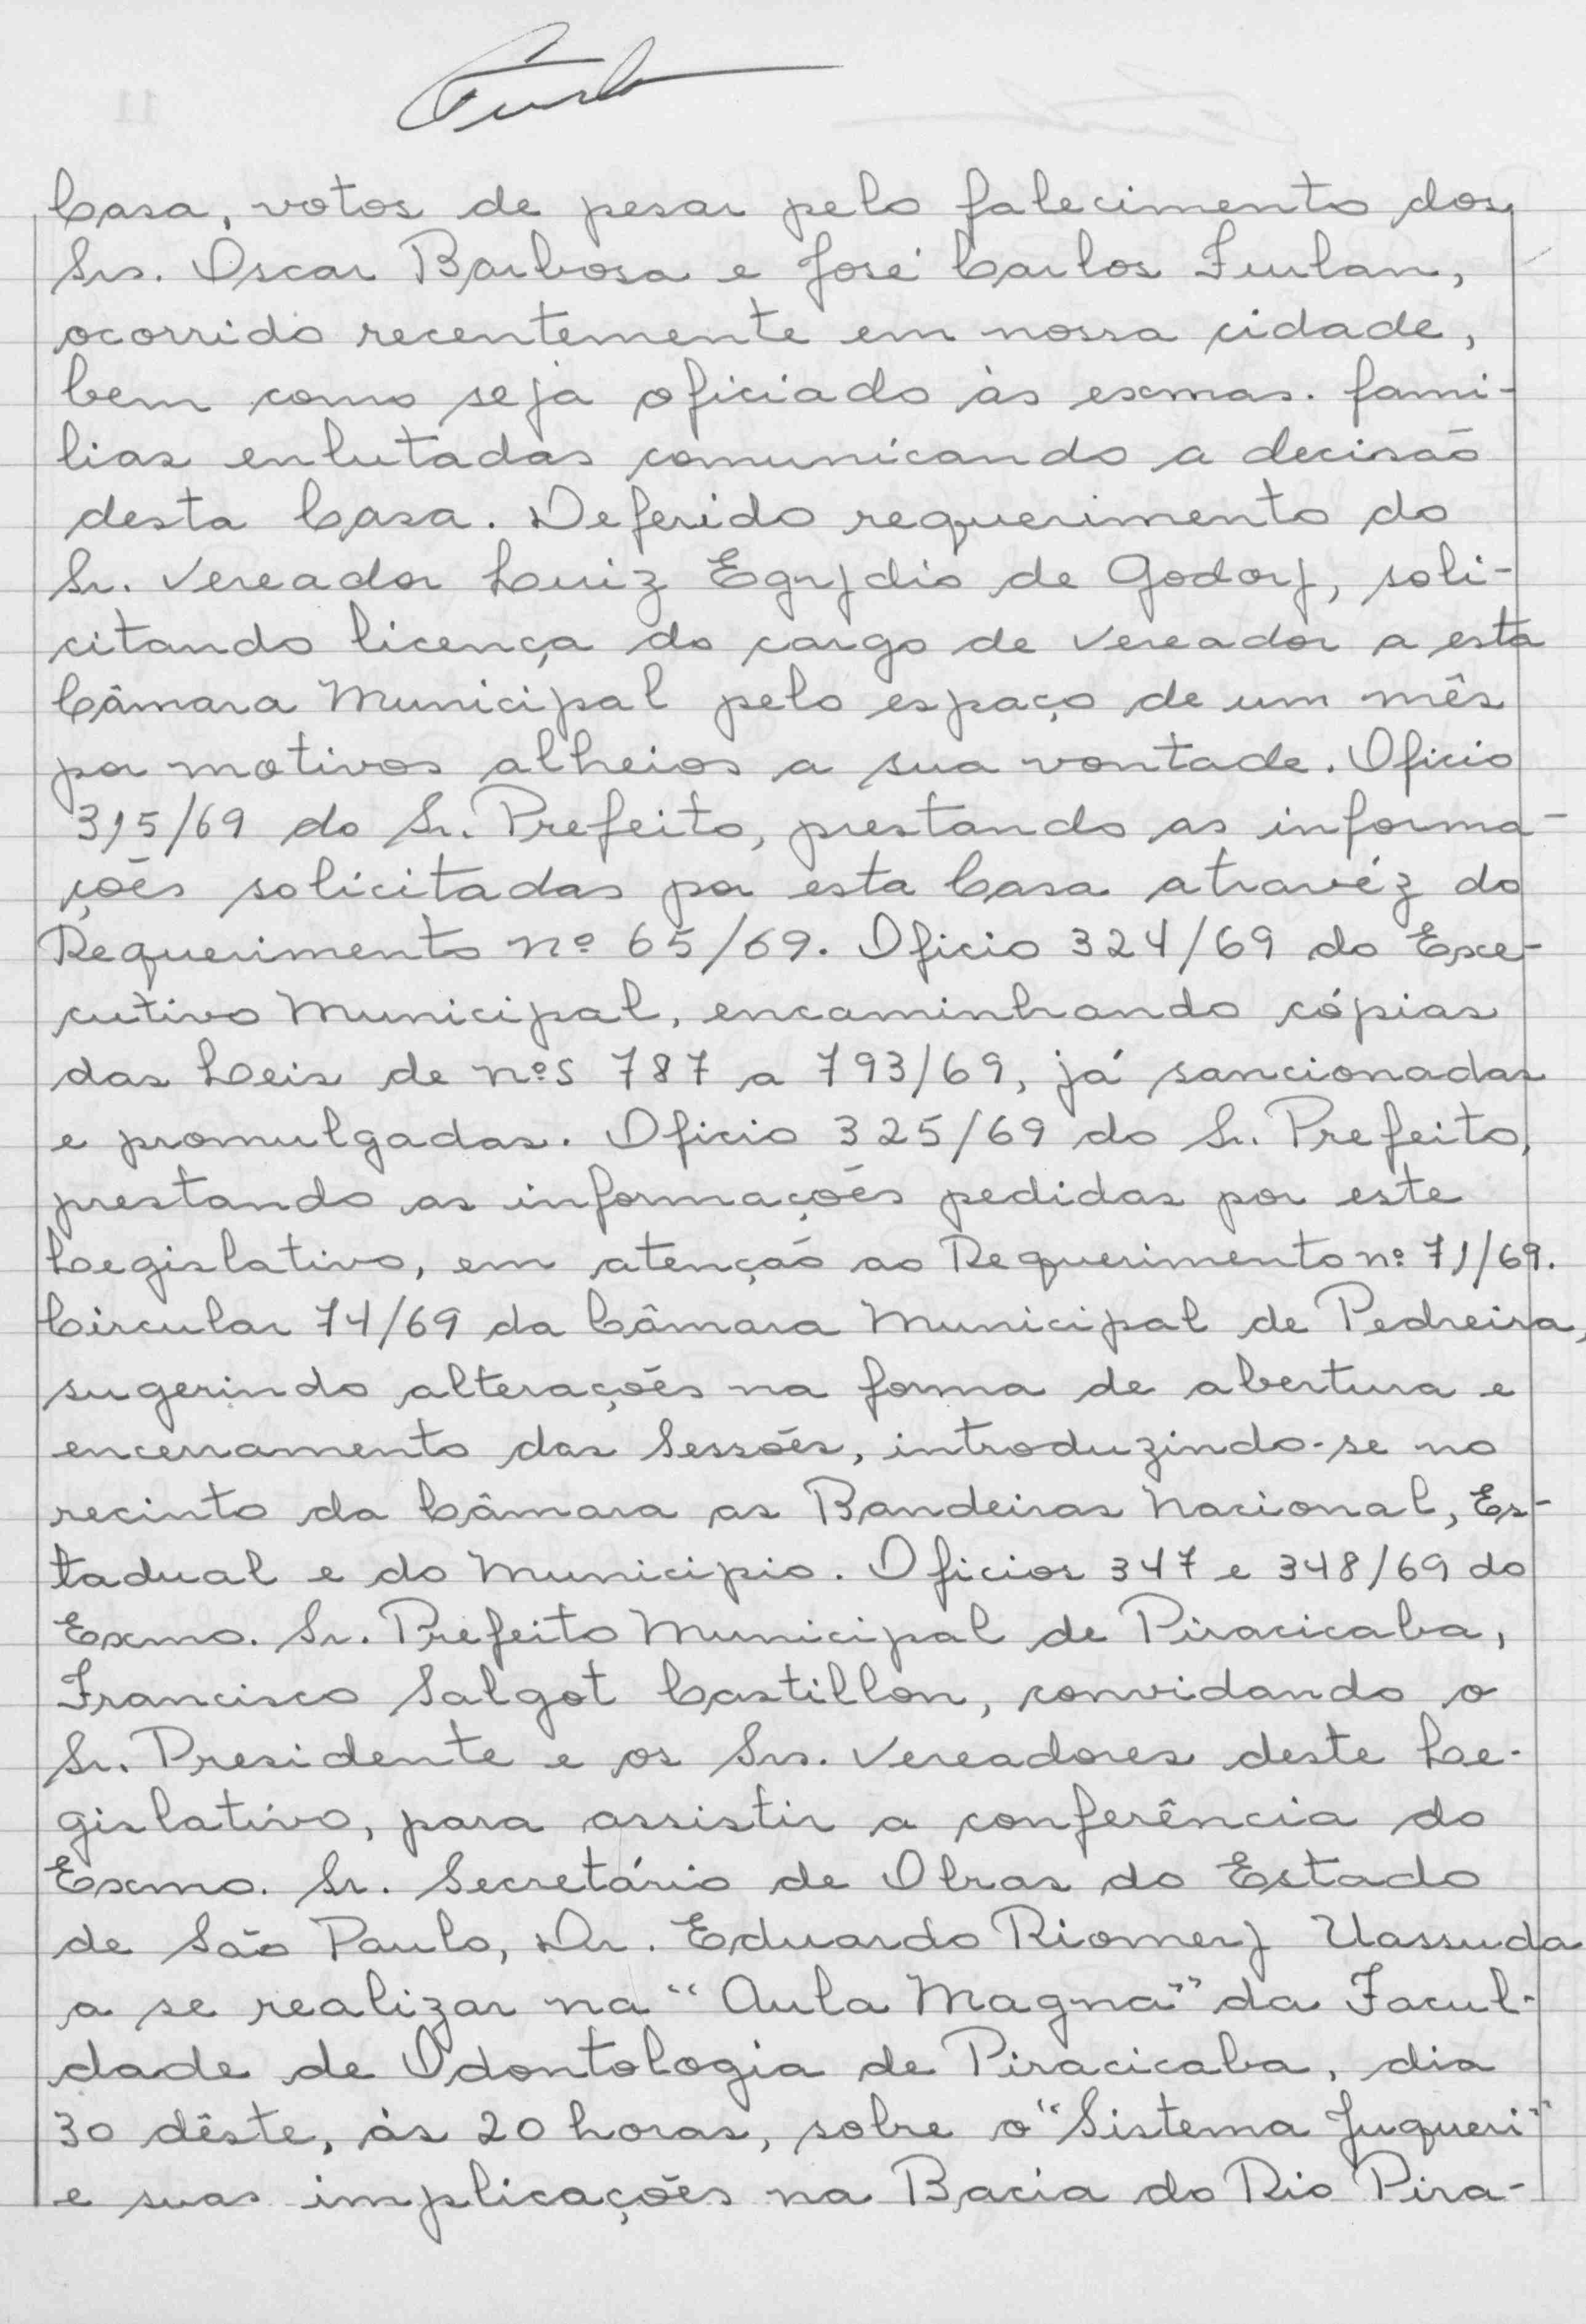 Casa, votos de pesar pelo falecimento dos
Srs. Oscar Barbosa e José Carlos Furlan,
ocorrido recentemente em nossa cidade,
bem como seja oficiado às exmas. fami-
lias enlutadas comunicando a decisão
desta Casa. Deferido requerimento do
Sr. Vereador Luiz Egydio de Godoy, soli-
citando licença do cargo de Vereador a esta
Câmara Municipal pelo espaço de um mês
por motivos alheios a sua vontade. Oficio
315/69 do Sr. Prefeito, prestando as informa-
ções solicitadas por esta Casa atravéz do
Requerimento nº 65/69. Oficio 324/69 do Exe-
cutivo Municipal, encaminhando cópias
das Leis de nºs 787 a 793/69, já sancionadas
e promulgadas. Oficio 325/69 do Sr. Prefeito,
prestando as informações pedidas por este
Legislativo, em atenção ao Requerimento nº 71/69.
Circular 74/69 da Câmara Municipal de Pedreira,
sugerindo alterações na forma de abertura e
encerramento das Sessões, introduzindo-se no
recinto da Câmara as Bandeiras Nacional, Es-
tadual e do Municipio. Oficios 347 e 348/69 do
Exmo. Sr. Prefeito Municipal de Piracicaba,
Francisco Salgot Castillon, convidando o
Sr. Presidente e os Srs. Vereadores deste Le-
gislativo, para assistir a conferência do
Exmo. Sr. Secretário de Obras do Estado
de São Paulo, Dr. Eduardo Riomey Uassuda
a se realizar na "Aula Magna" da Facul-
dade de Odontologia de Piracicaba, dia
30 dêste, às 20 horas, sobre o "Sistema Juqueri"
e suas implicações na Bacia do Rio Pira-